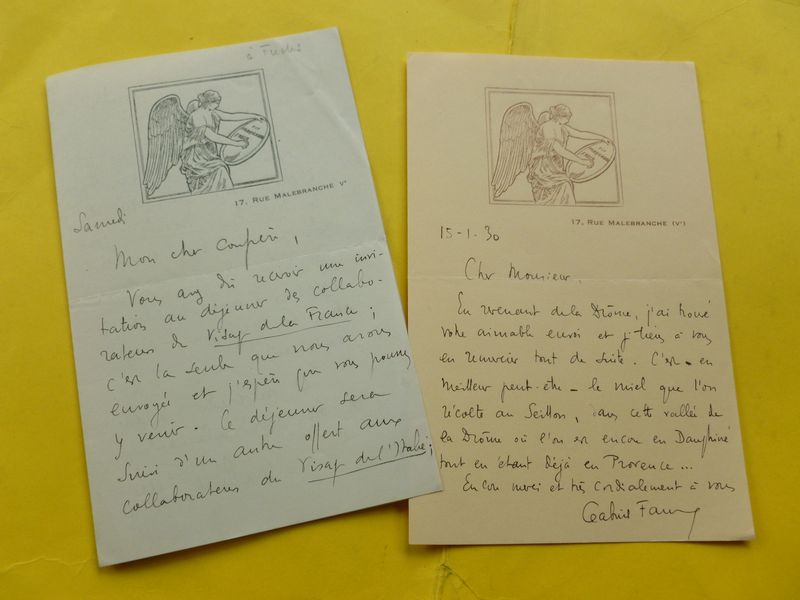 à Fuchs
17, RUE MALEBRANCHE Vᵉ
Samedi
Mon cher confrère,
Vous avez dû recevoir une invi-
tation au déjeuner des collabo-
rateurs de Visage de la France ;
c'est la seule que nous avons
envoyée et j'espère que vous pourrez
y venir. Ce déjeuner sera
suivi d'un autre offert aux
collaborateurs du Visage de l'Italie ;
17, RUE MALEBRANCHE (Vᵉ)
15-1-30
Cher Monsieur,
En revenant de la Drôme, j'ai trouvé
votre aimable envoi et je tiens à vous
en remercier tout de suite. C'est - en
meilleur peut-être - le miel que l'on
récolte au Seillon, dans cette vallée de
la Drôme où l'on est encore en Dauphiné
tout en étant déjà en Provence...
Encore merci et très cordialement à vous
Gabriel Faure